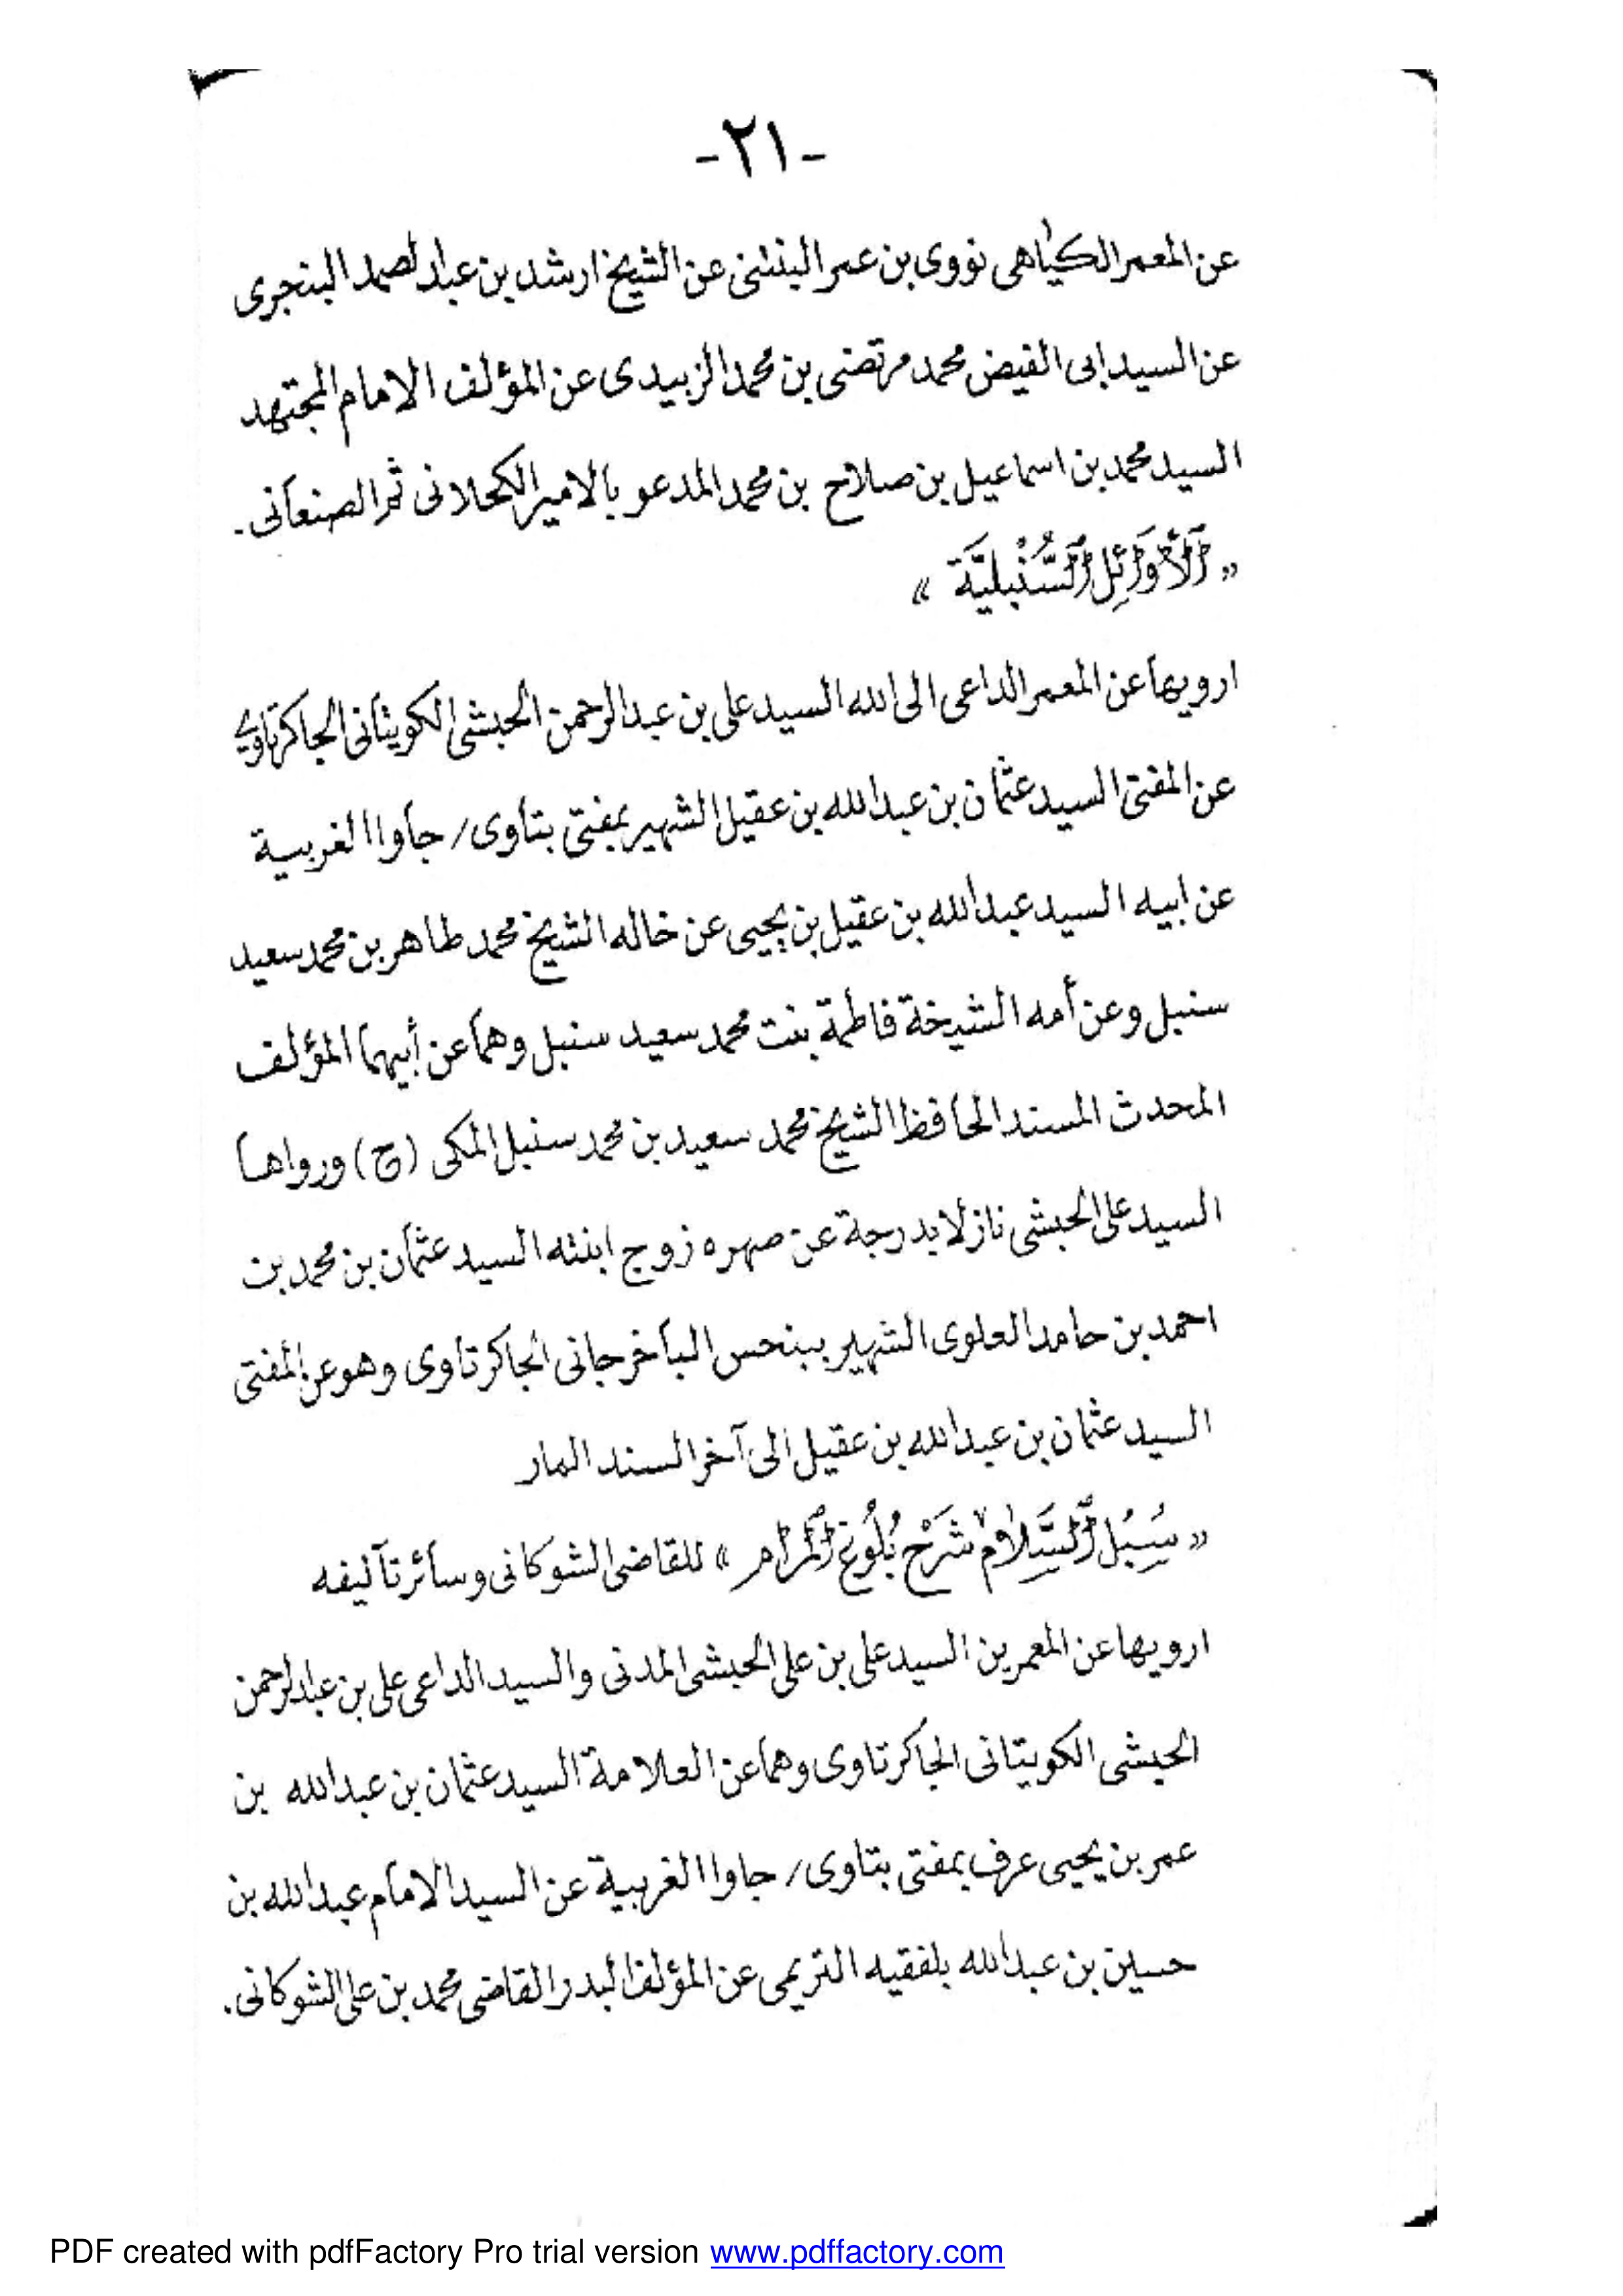 -٢١-
عن المعمر الكياهى نووى بن عمر البنتنى عن الشيخ ارشد بن عبد الصمد البنجرى
عن السيد ابى الفيض محمد مرتضى بن محمد الزبيدى عن المؤلف الامام المجتهد
السيد محمد بن اسماعيل بن صلاح بن محمد المدعو بالامير الكحلانى ثم الصنعانى.
« اَلْأَوَائِلِ السُّنْبُلِيَّةَ »
ارويها عن المعمر الداعى الى الله السيد على بن عبد الرحمن الحبشى الكويتانى الجاكرتاوي
عن المفتى السيد عثمان بن عبد الله بن عقيل الشهير بمفتى بتاوى/ جاوا الغربية
عن ابيه السيد عبد الله بن عقيل بن يحيى عن خاله الشيخ محمد طاهر بن محمد سعيد
سنبل وعن أمه الشيخة فاطمة بنت محمد سعيد سنبل وهما عن أبيهما المؤلف
المحدث المسند الحافظ الشيخ محمد سعيد بن محمد سنبل المكى (ح) ورواها
السيد على الحبشى نازلا بدرجة عن صهره زوج ابنته السيد عثمان بن محمد بن
احمد بن حامد العلوى الشهير ببنحس الباخرجانى الجاكرتاوى وهو عن المفتى
السيد عثمان بن عبد الله بن عقيل الى آخر السند المار
« سُبُلِ السَّلَامْ شَرْح بُلُوغ الْمَرَام » للقاضى الشوكانى وسائر تآليفه
ارويها عن المعمرين السيد على بن على الحبشى المدنى والسيد الداعى على بن عبد الرحمن
الحبشى الكويتانى الجاكرتاوى وهما عن العلامة السيد عثمان بن عبد الله بن
عمر بن يحيى عرف بمفتى بتاوى/ جاوا الغربية عن السيد الامام عبد الله بن
حسين بن عبد الله بلفقيه التريمى عن المؤلف البدر القاضى محمد بن على الشوكانى.
PDF created with pdfFactory Pro trial version www.pdffactory.com